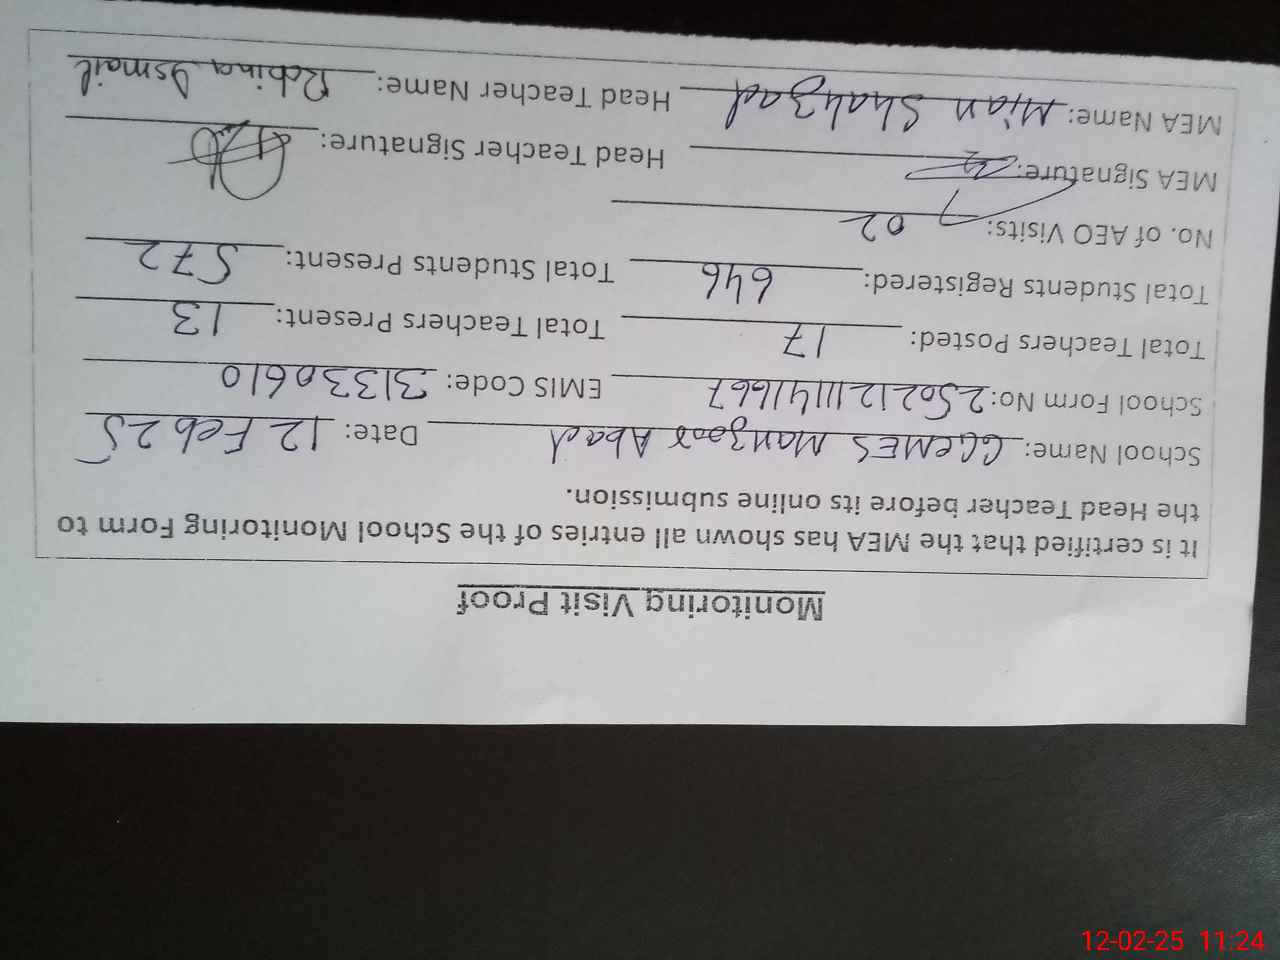 Monitoring Visit Proof
It is certified that the MEA has shown all entries of the School Monitoring Form to
the Head Teacher before its online submission.
School Name: GGCMES Manzoor Abad Date: 12 Feb 25
School Form No: 250212111411667 EMIS Code: 31330610
Total Teachers Posted: 17 Total Teachers Present: 13
Total Students Registered: 646 Total Students Present: 572
No. of AEO Visits: 02
MEA Signature: Head Teacher Signature:
MEA Name: Mian Shahzad Head Teacher Name: Robina Ismail
12-02-25 11:24